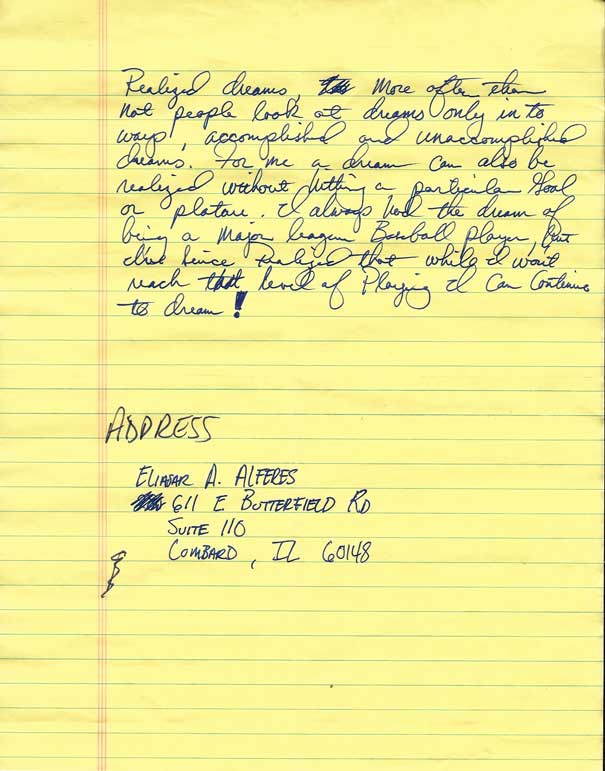 Realized dreams, More often than
not people look at dreams only in to
ways, accomplished and unaccomplished
dreams. For me a dream can also be
realized without hitting a particular Goal
or platau.. I always had the dream of
being a Major league Baseball player, but
I've since realized that while I won't
reach that level of Playing I Can Continue
to dream!
ADDRESS
A. ALFERES
611 E BUTTERFIELD RD
SUITE 110
LOMBARD, IL 60148